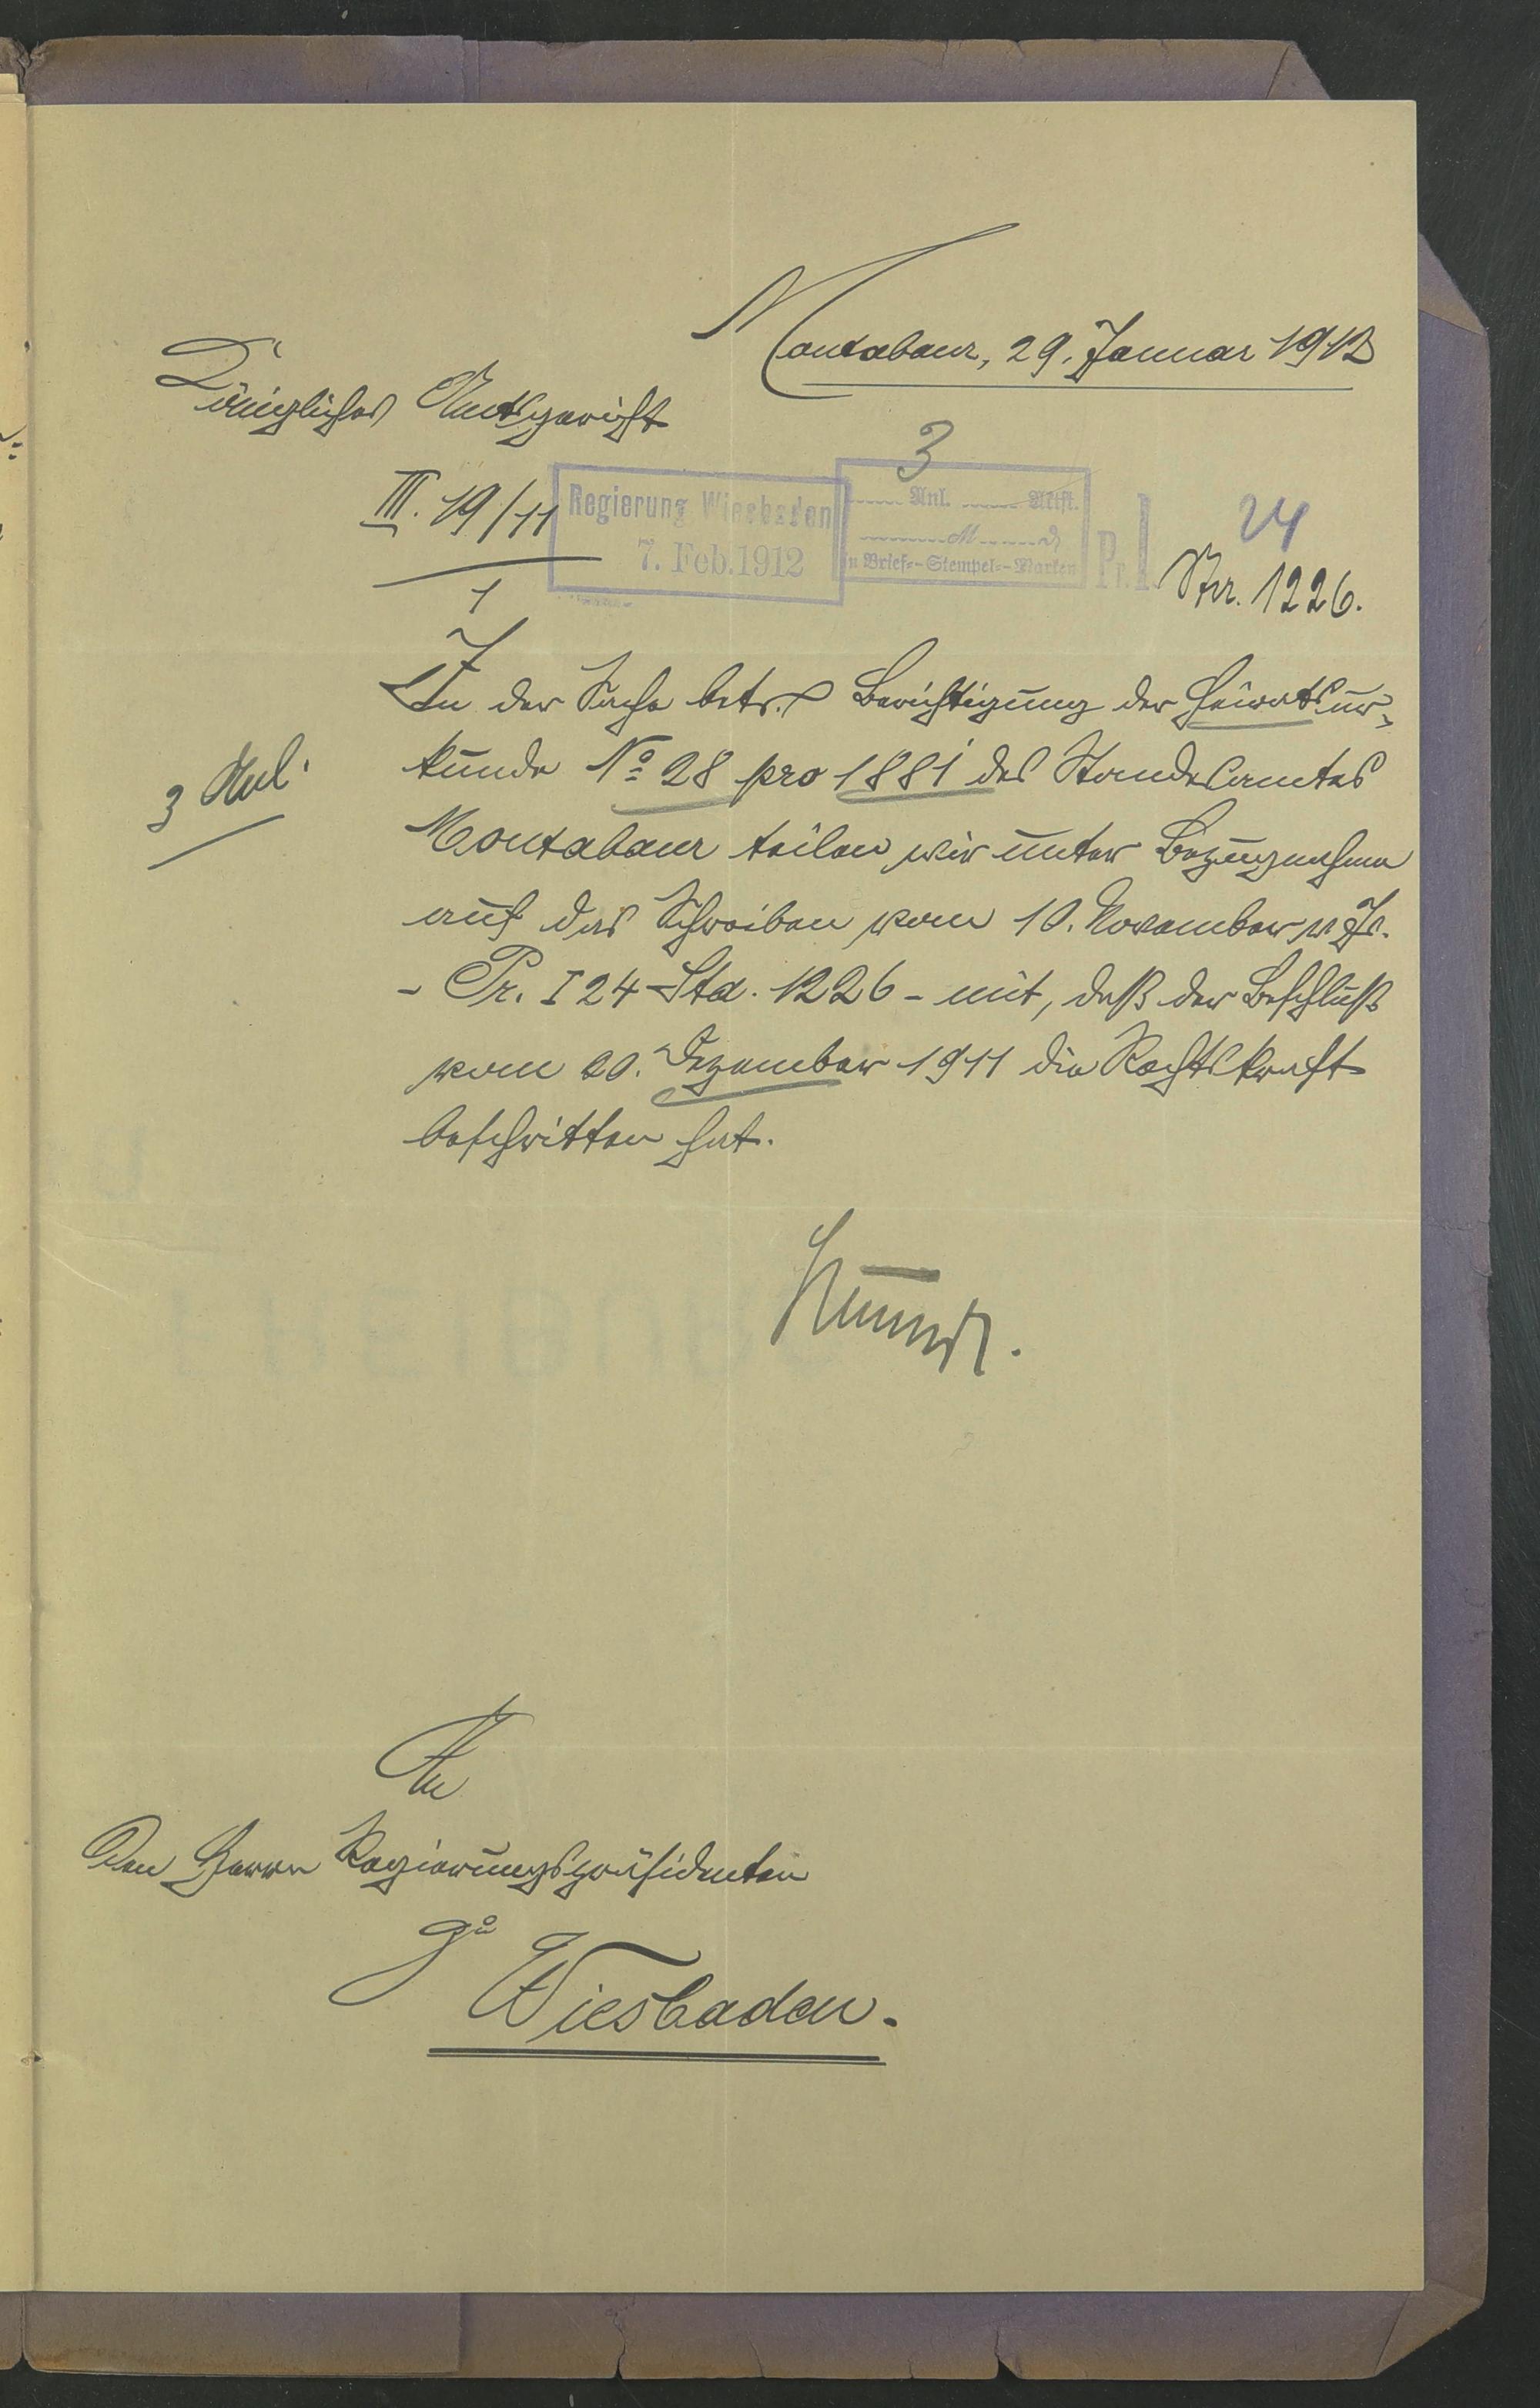 Montabaur, 29. Januar 1912
Königliches Amtsgericht
III. 19/11
1
Regierung Wiesbaden
7. Feb. 1912
3
Anl. Attst.
M
in Brief-Stempel-Marken
Pr. I
24
Str. 1226.
3 Anl.
In der Sache betr. Berichtigung der Heiratsur-
kunde No 28 pro 1881 des Standesamtes
Montabaur teilen wir unter Bezugnahme
auf das Schreiben vom 10. November v. Js.
- Pr. I 24 Sta. 1226 - mit, daß der Beschluß
vom 20. Dezember 1911 die Rechtskraft
beschritten hat.
An
den Herrn Regierungspräsidenten
zu
Wiesbaden.